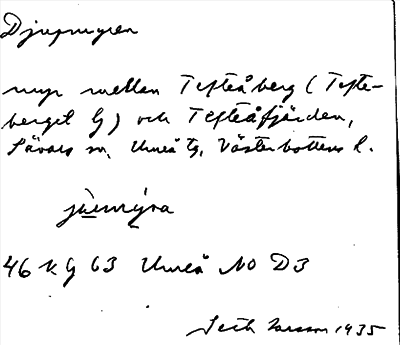 Djupmyren
myr mellan Tefteåberg (Tefte-
berget G) och Tefteåfjärden,
Sävars sn, Umeå tg, Västerbottens l.
jùemýra
46 K G 63 Umeå NO D3
Seth Larsson 1935